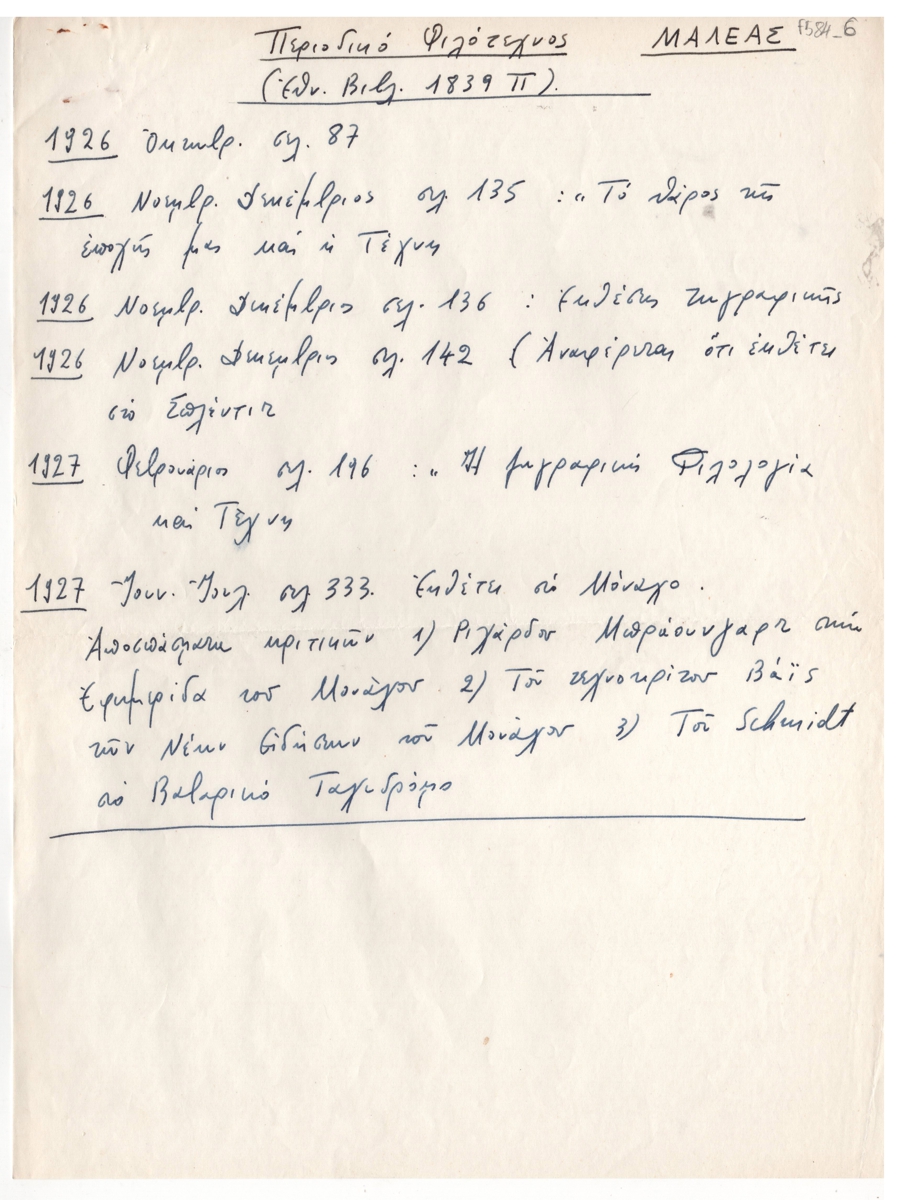 Περιοδικό Φιλότεχνος ΜΑΛΕΑΣ F584_6
(Ἐθν. Βιβλ. 1839 Π).
1926 Ὀκτωβρ. σελ. 87
1926 Νοεμβρ. Δεκέμβριος σελ. 135 : "Τό θάρος τῆς
ἐποχῆς μας καί ἡ Τέχνη
1926 Νοεμβρ. Δεκέμβριος σελ. 136 : Ἐκθέσεις ζωγραφικῆς
1926 Νοεμβρ. Δεκεμβριος σελ. 142 (Ἀναφέρεται ὅτι ἐκθέτει
στό Σπλέντιτ
1927 Φεβρουάριος σελ. 196 : "Ἡ ζωγραφική Φιλολογία
καί Τέχνη
1927 Ἰουν. Ἰουλ. σελ 333. Ἐκθέτει στό Μόναχο.
Ἀποσπάσματα κριτικῶν 1) Ριχάρδου Μπράουνγαρτ στήν
Ἐφημερίδα τοῦ Μονάχου 2) Τοῦ τεχνοκρίτου Βάϊς
τῶν Νέων Εἰδήσεων τοῦ Μονάχου 3) Τοῦ Schmidt
στό Βαβαρικό Ταχυδρόμο